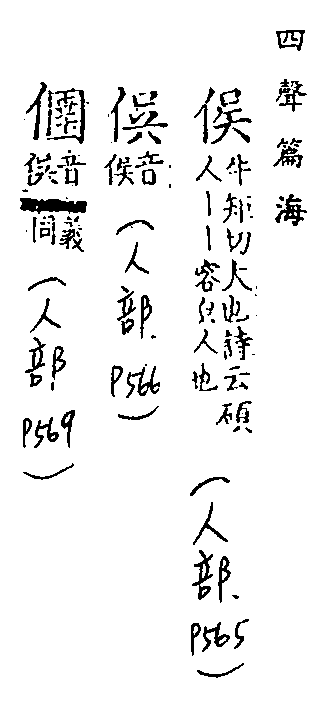 四聲篇海
俁
牛矩切大也詩云碩
人丨丨容皃人也
(人部.P565)
俣
音俁
(人部.P566)
音俁
義同
(人部.P569)